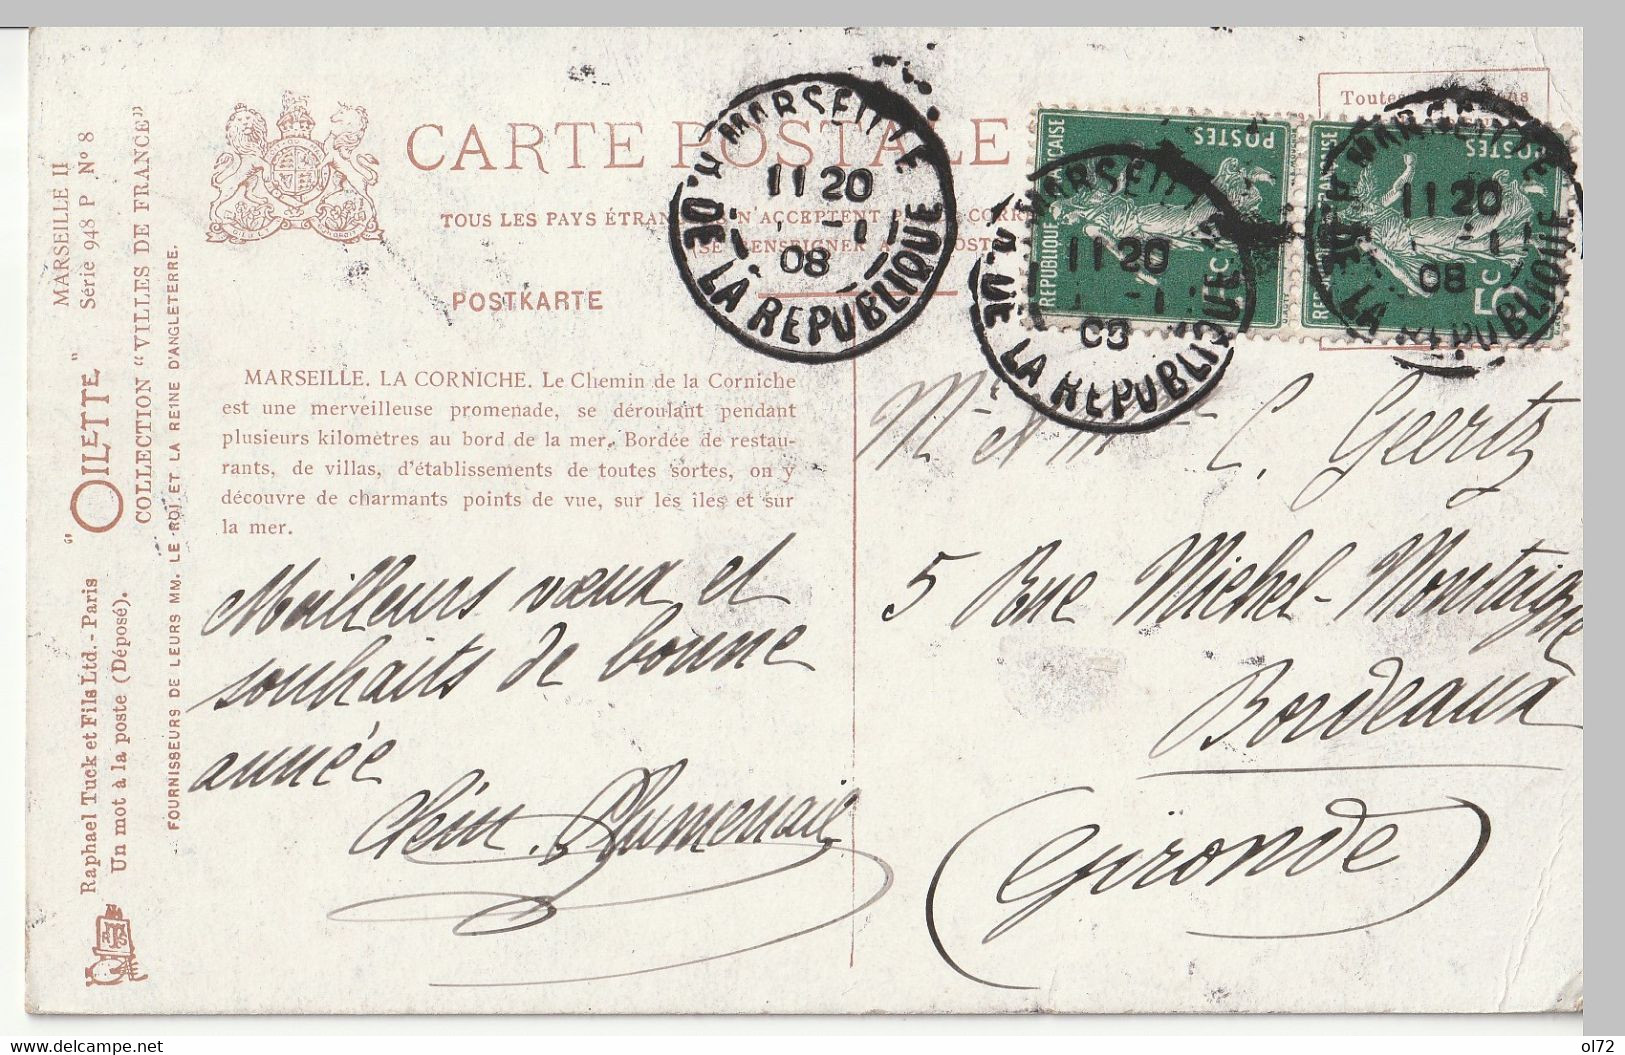 MARSEILLE II
Série 948 P Nº 8
"OILETTE"
COLLECTION "VILLES DE FRANCE"
FOURNISSEURS DE LEURS MM. LE ROI ET LA REINE D'ANGLETERRE.
Raphael Tuck et Fils Ltd. - Paris
Un mot à la poste (Déposé).
CARTE POSTALE
TOUS LES PAYS ÉTRAN N'ACCEPTENT P CORR
SE RENSEIGNER A POST
POSTKARTE
Toutes
MARSEILLE
11 20
08
R. DE LA REPUBLIQUE
MARSEILLE
11 20
08
R. DE LA REPUBLIQUE
MARSEILLE
11 20
08
R. DE LA REPUBLIQUE
REPUBLIQUE FRANÇAISE
POSTES
5c
REPUBLIQUE FRANÇAISE
POSTES
5c
MARSEILLE. LA CORNICHE. Le Chemin de la Corniche
est une merveilleuse promenade, se déroulant pendant
plusieurs kilomètres au bord de la mer. Bordée de restau-
rants, de villas, d'établissements de toutes sortes, on y
découvre de charmants points de vue, sur les îles et sur
la mer.
Meilleurs vœux et
souhaits de bonne
année
Mr et Mme C. Geertz
5 Rue Michel-Montaigne
Bordeaux
(Gironde)
delcampe.net
ol72